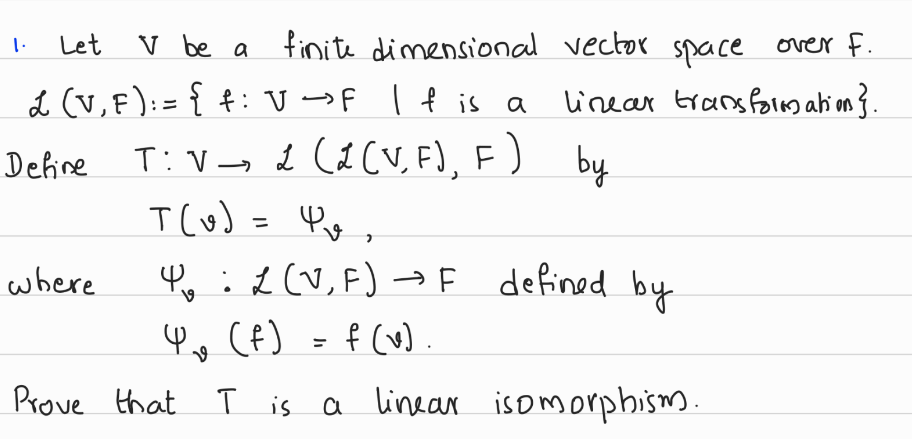 1. Let V be a finite dimensional vector space over F.
ℒ(V,F):= { f: V → F | f is a linear transformation}.
Define T: V → ℒ (ℒ(V,F), F) by
T(v) = Ψ_v ,
where Ψ_v : ℒ(V,F) → F defined by
Ψ_v (f) = f(v).
Prove that T is a linear isomorphism.